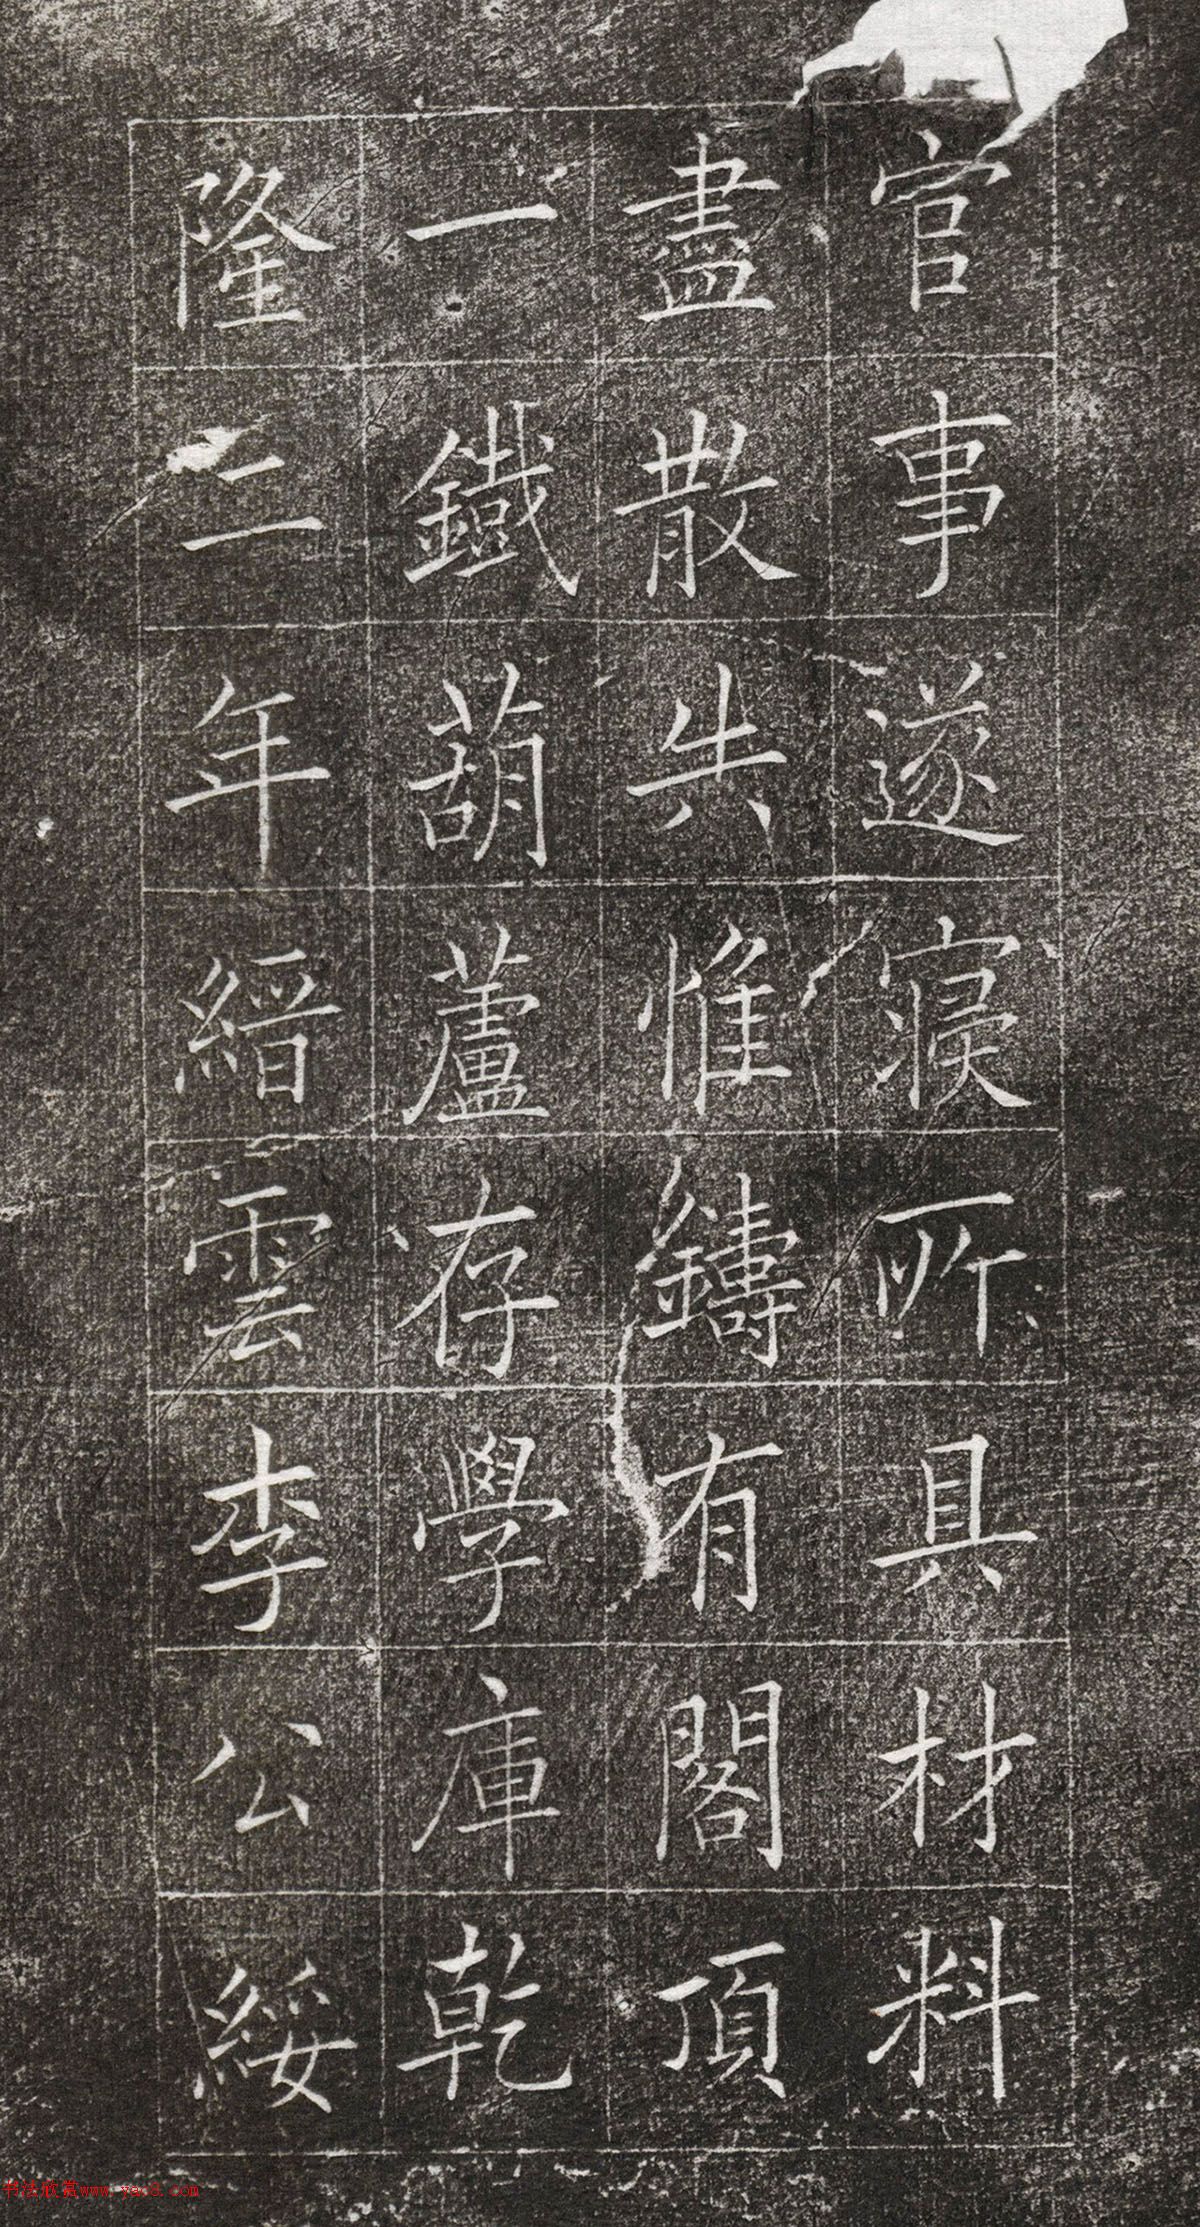 官事遂寢所具材料
盡散失惟鑄有閣頂
一鐵葫蘆存學庫乾
隆二年縉雲李公綏
书法欣赏www.yac8.com